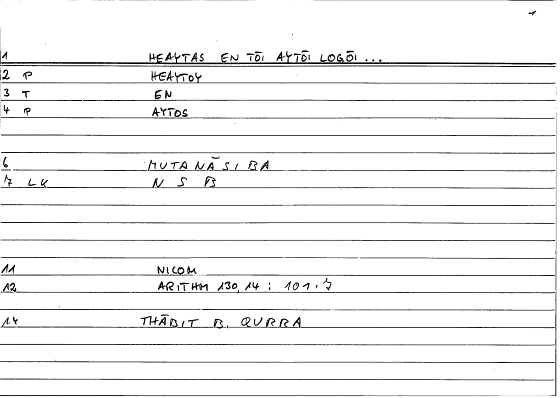 1 HEAYTAS EN TŌI AYTŌI LOGŌI ...
2 P HEAYTOY
3 T EN
4 P AYTOS
6 MUTANĀSIBA
7 LK N S B
11 NICOM
12 ARITHM 130,14 : 101,7
14 THĀBIT B. QURRA